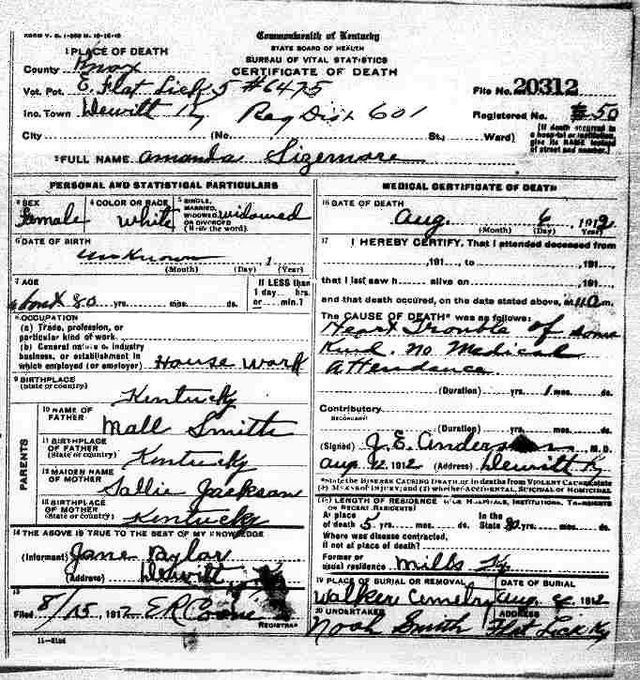 Commonwealth of Kentucky
STATE BOARD OF HEALTH
BUREAU OF VITAL STATISTICS
CERTIFICATE OF DEATH
1 PLACE OF DEATH
County Knox
Vot. Pct. E. Flat Lick 5 #6475
File No. 20312
Inc. Town Dewitt Ky Reg Dist 601
Registered No. 50
City (No. St., Ward)
[If death occurred in a hospital or institution, give its NAME instead of street and number.]
2 FULL NAME Amanda Sizemore
PERSONAL AND STATISTICAL PARTICULARS
3 SEX Female
4 COLOR OR RACE White
5 SINGLE, MARRIED, WIDOWED OR DIVORCED (Write the word) widowed
6 DATE OF BIRTH
unknown 1
(Month) (Day) (Year)
7 AGE
80 yrs. mos. ds.
If LESS than 1 day hrs. or min.?
8 OCCUPATION
(a) Trade, profession, or particular kind of work
(b) General nature of industry business, or establishment in which employed (or employer) House Work
9 BIRTHPLACE
(State or country)
Kentucky
PARENTS
10 NAME OF FATHER
Mall Smith
11 BIRTHPLACE OF FATHER
(State or country) Kentucky
12 MAIDEN NAME OF MOTHER
Sallie Jackson
13 BIRTHPLACE OF MOTHER
(State or country) Kentucky
14 THE ABOVE IS TRUE TO THE BEST OF MY KNOWLEDGE
(Informant) Jane
(Address) Dewitt
15
Filed 8/15 1912 E R
REGISTRAR
MEDICAL CERTIFICATE OF DEATH
16 DATE OF DEATH
Aug. 6 1912
(Month) (Day) (Year)
17 I HEREBY CERTIFY, That I attended deceased from
191 , to 191
that I last saw h alive on 191
and that death occured, on the date stated above, at m.
The CAUSE OF DEATH* was as follows:
Heart Trouble of some
Kind. No Medical
Attendance
(Duration) yrs. 1 mos. ds.
Contributory
(Duration) yrs. mos. ds.
(Signed) J. E. Anderson M.D.
Aug 12, 1912 (Address) Dewitt Ky
*State the DISEASE CAUSING DEATH, or in deaths from VIOLENT CAUSES state (1) MEANS OF INJURY; and (2) whether ACCIDENTAL, SUICIDAL or HOMICIDAL
LENGTH OF RESIDENCE (FOR HOSPITALS, INSTITUTIONS, TRANSIENTS OR RECENT RESIDENTS)
At place of death 5 yrs. mos. ds. In the State 80 yrs. mos. ds.
Where was disease contracted, if not at place of death?
Former or usual residence Mills Ky
19 PLACE OF BURIAL OR REMOVAL
Walker Cemetry
DATE OF BURIAL
Aug 1912
20 UNDERTAKER
Noah Smith
ADDRESS
Flat Lick Ky